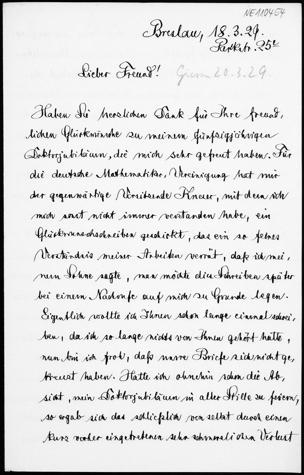 NE110454
Breslau, 18.3.29.
Parkstr. 25
Lieber Freund! 20.3.29.
Haben Sie herzlichen Dank für Ihre freund-
lichen Glückwünsche zu meinem fünfzigjährigen
Doktorjubiläum, die mich sehr gefreut haben. Für
die deutsche Mathematiker-Vereinigung hat mir
der gegenwärtige Vorsitzende Kneser, mit dem ich
mich sonst nicht immer verstanden habe, ein
Glückwunschschreiben geschickt, das ein so feines
Verständnis meiner Arbeiten verrät, daß ich mei-
nem Sohne sagte, man möchte dies Schreiben später
bei einem Nachrufe auf mich zu Grunde legen.
Eigentlich wollte ich Ihnen schon lange einmal schrei-
ben, da ich so lange nichts von Ihnen gehört hatte,
nun bin ich froh, daß unsre Briefe sich nicht ge-
kreuzt haben. Hatte ich ohnehin schon die Ab-
sicht, mein Doktorjubiläum in aller Stille zu feiern,
so ergab sich das schließlich von selbst durch einen
kurz vorher eingetretenen sehr schmerzlichen Verlust